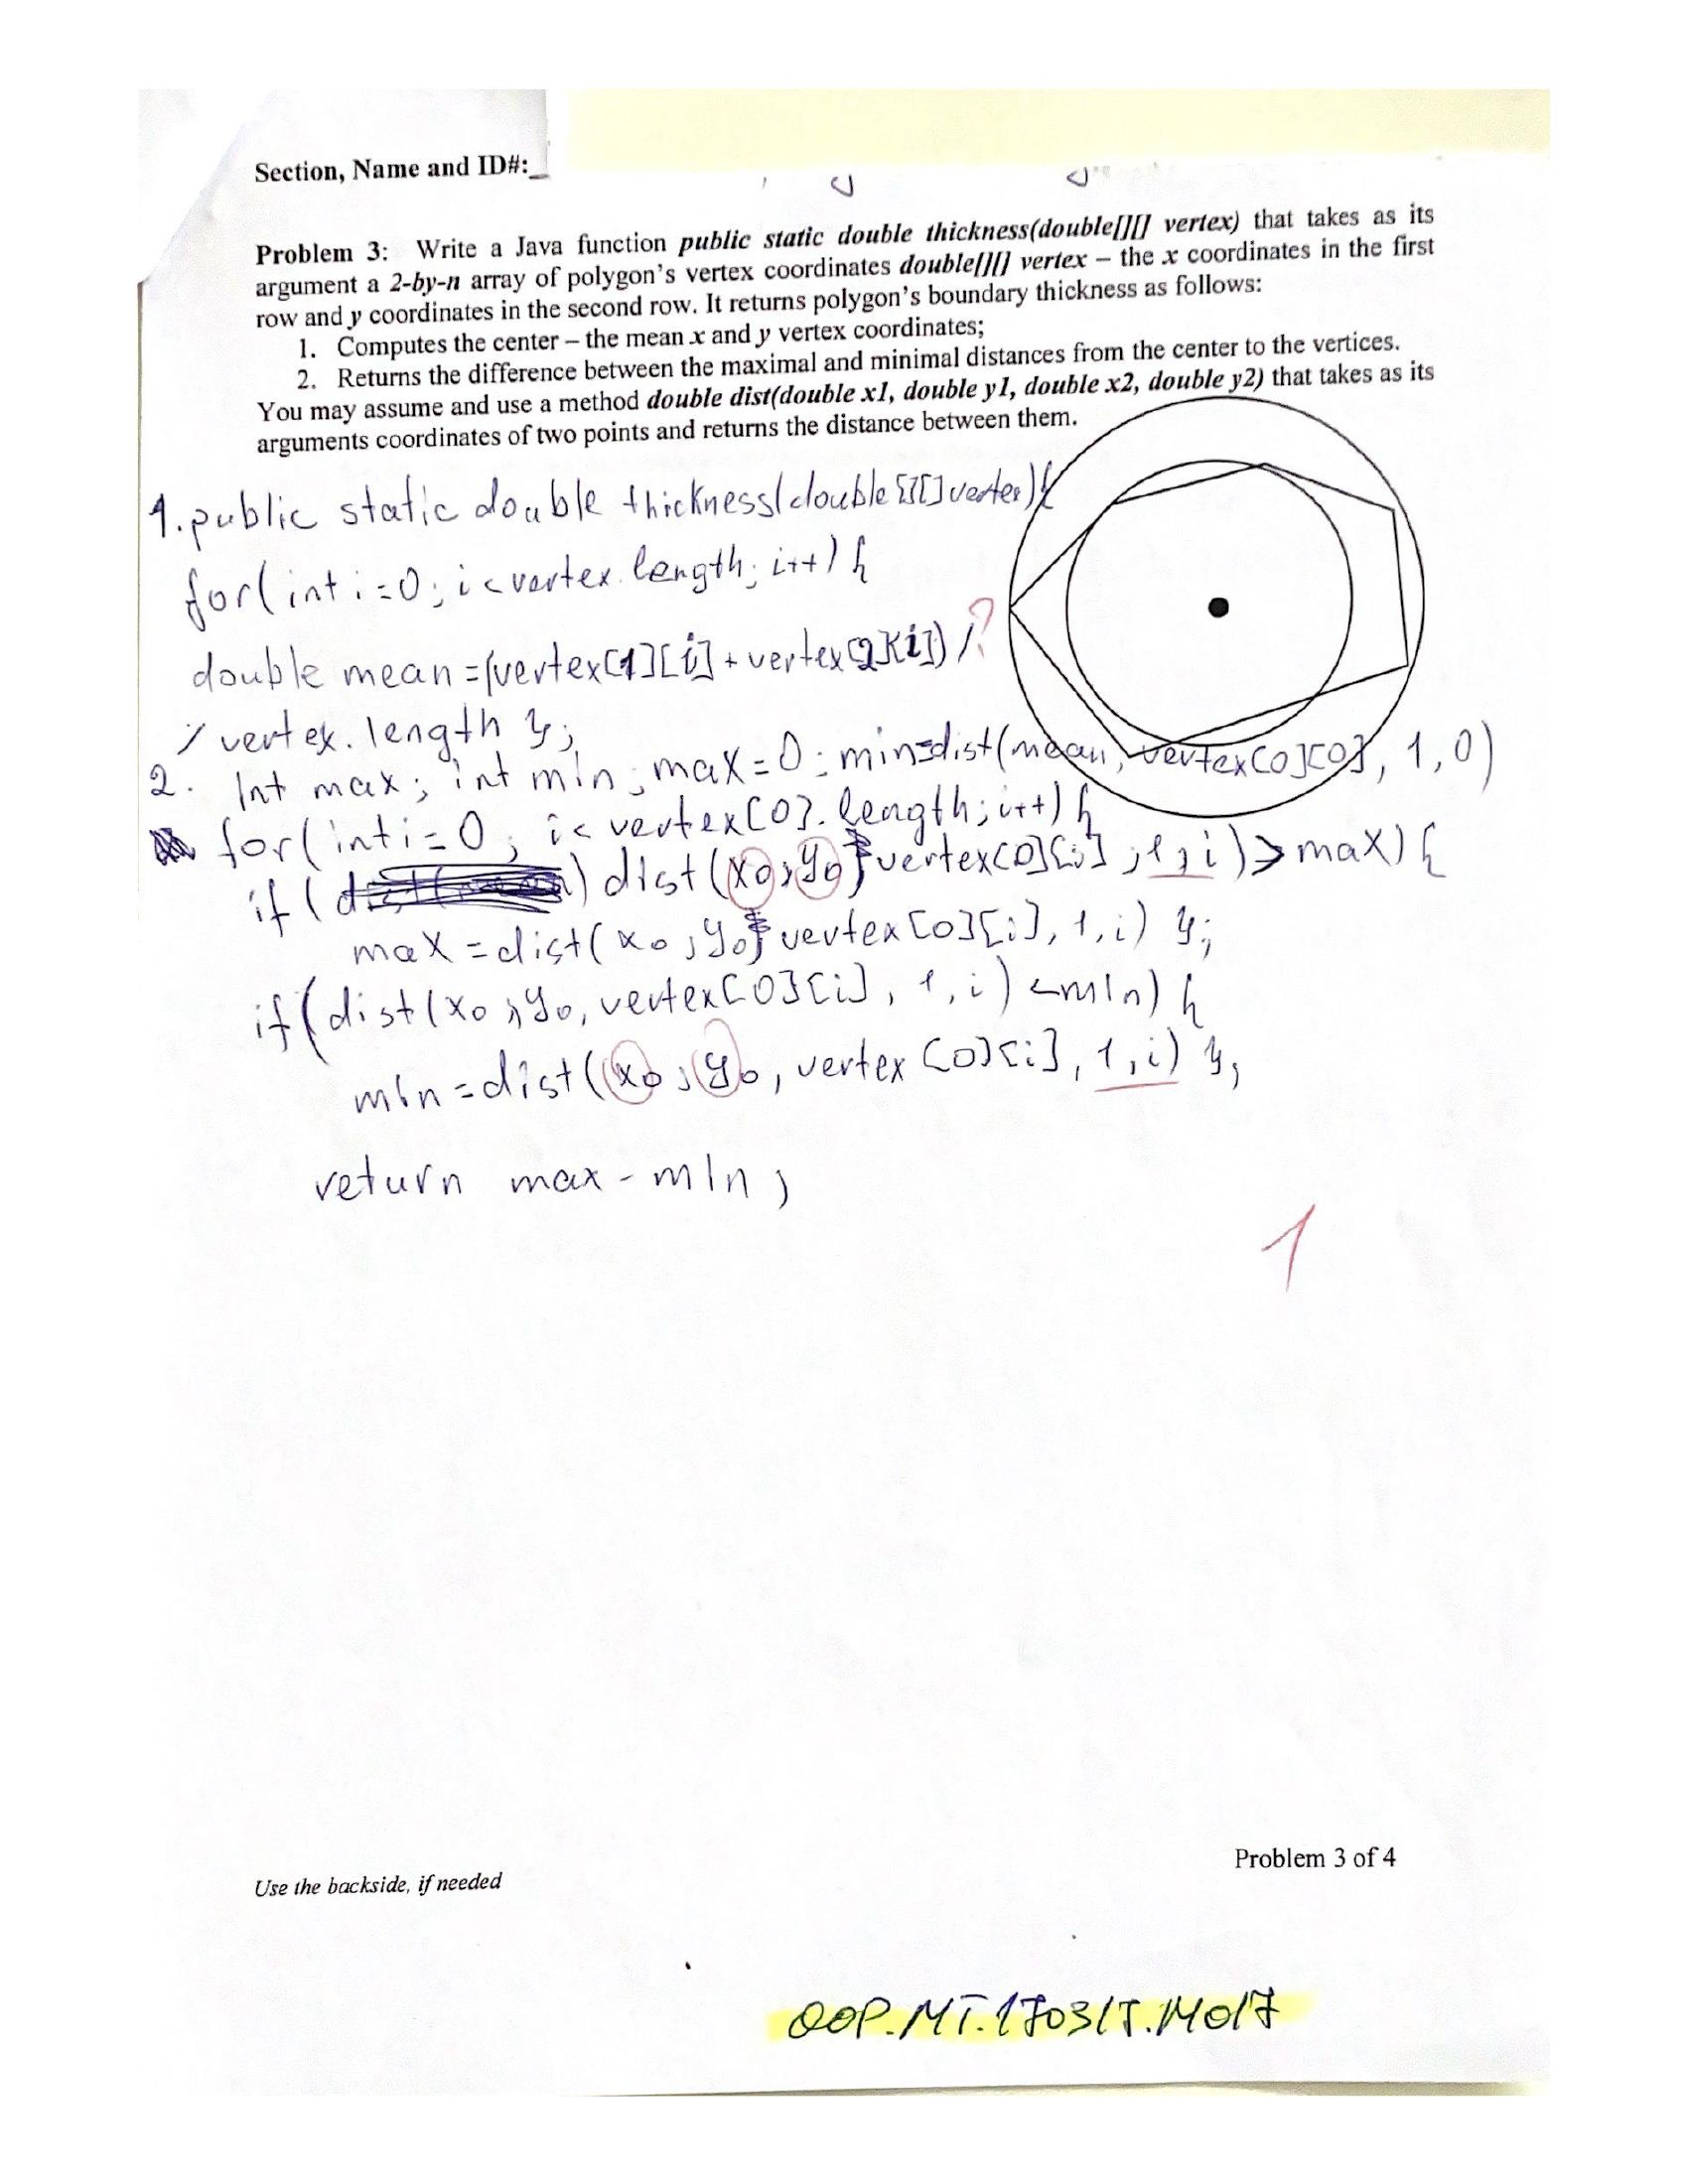 Section, Name and ID#:_
Problem 3: Write a Java function public static double thickness(double[][] vertex) that takes as its
argument a 2-by-n array of polygon's vertex coordinates double[][] vertex – the x coordinates in the first
row and y coordinates in the second row. It returns polygon's boundary thickness as follows:
1. Computes the center – the mean x and y vertex coordinates;
2. Returns the difference between the maximal and minimal distances from the center to the vertices.
You may assume and use a method double dist(double x1, double y1, double x2, double y2) that takes as its
arguments coordinates of two points and returns the distance between them.
1. public static double thickness(double[][]vertex){
for(int i=0; i<vertex.length; i++) {
double mean=(vertex[1][i]+vertex[2][i]) /?
/ vertex.length };
2. Int max; int min; max=0; min=dist(mean, vertex[0][0], 1,0)
for(int i=0; i<vertex[0].length; i++) {
if( dist(x0,y0, vertex[0][i], 1, i)>max) {
max=dist(x0,y0, vertex[0][i], 1, i) };
if(dist(x0,y0, vertex[0][i], 1, i) <min) {
min=dist(x0,y0, vertex[0][i], 1, i) };
return max-min;
1
Use the backside, if needed
Problem 3 of 4
OOP.MT.170315.M017